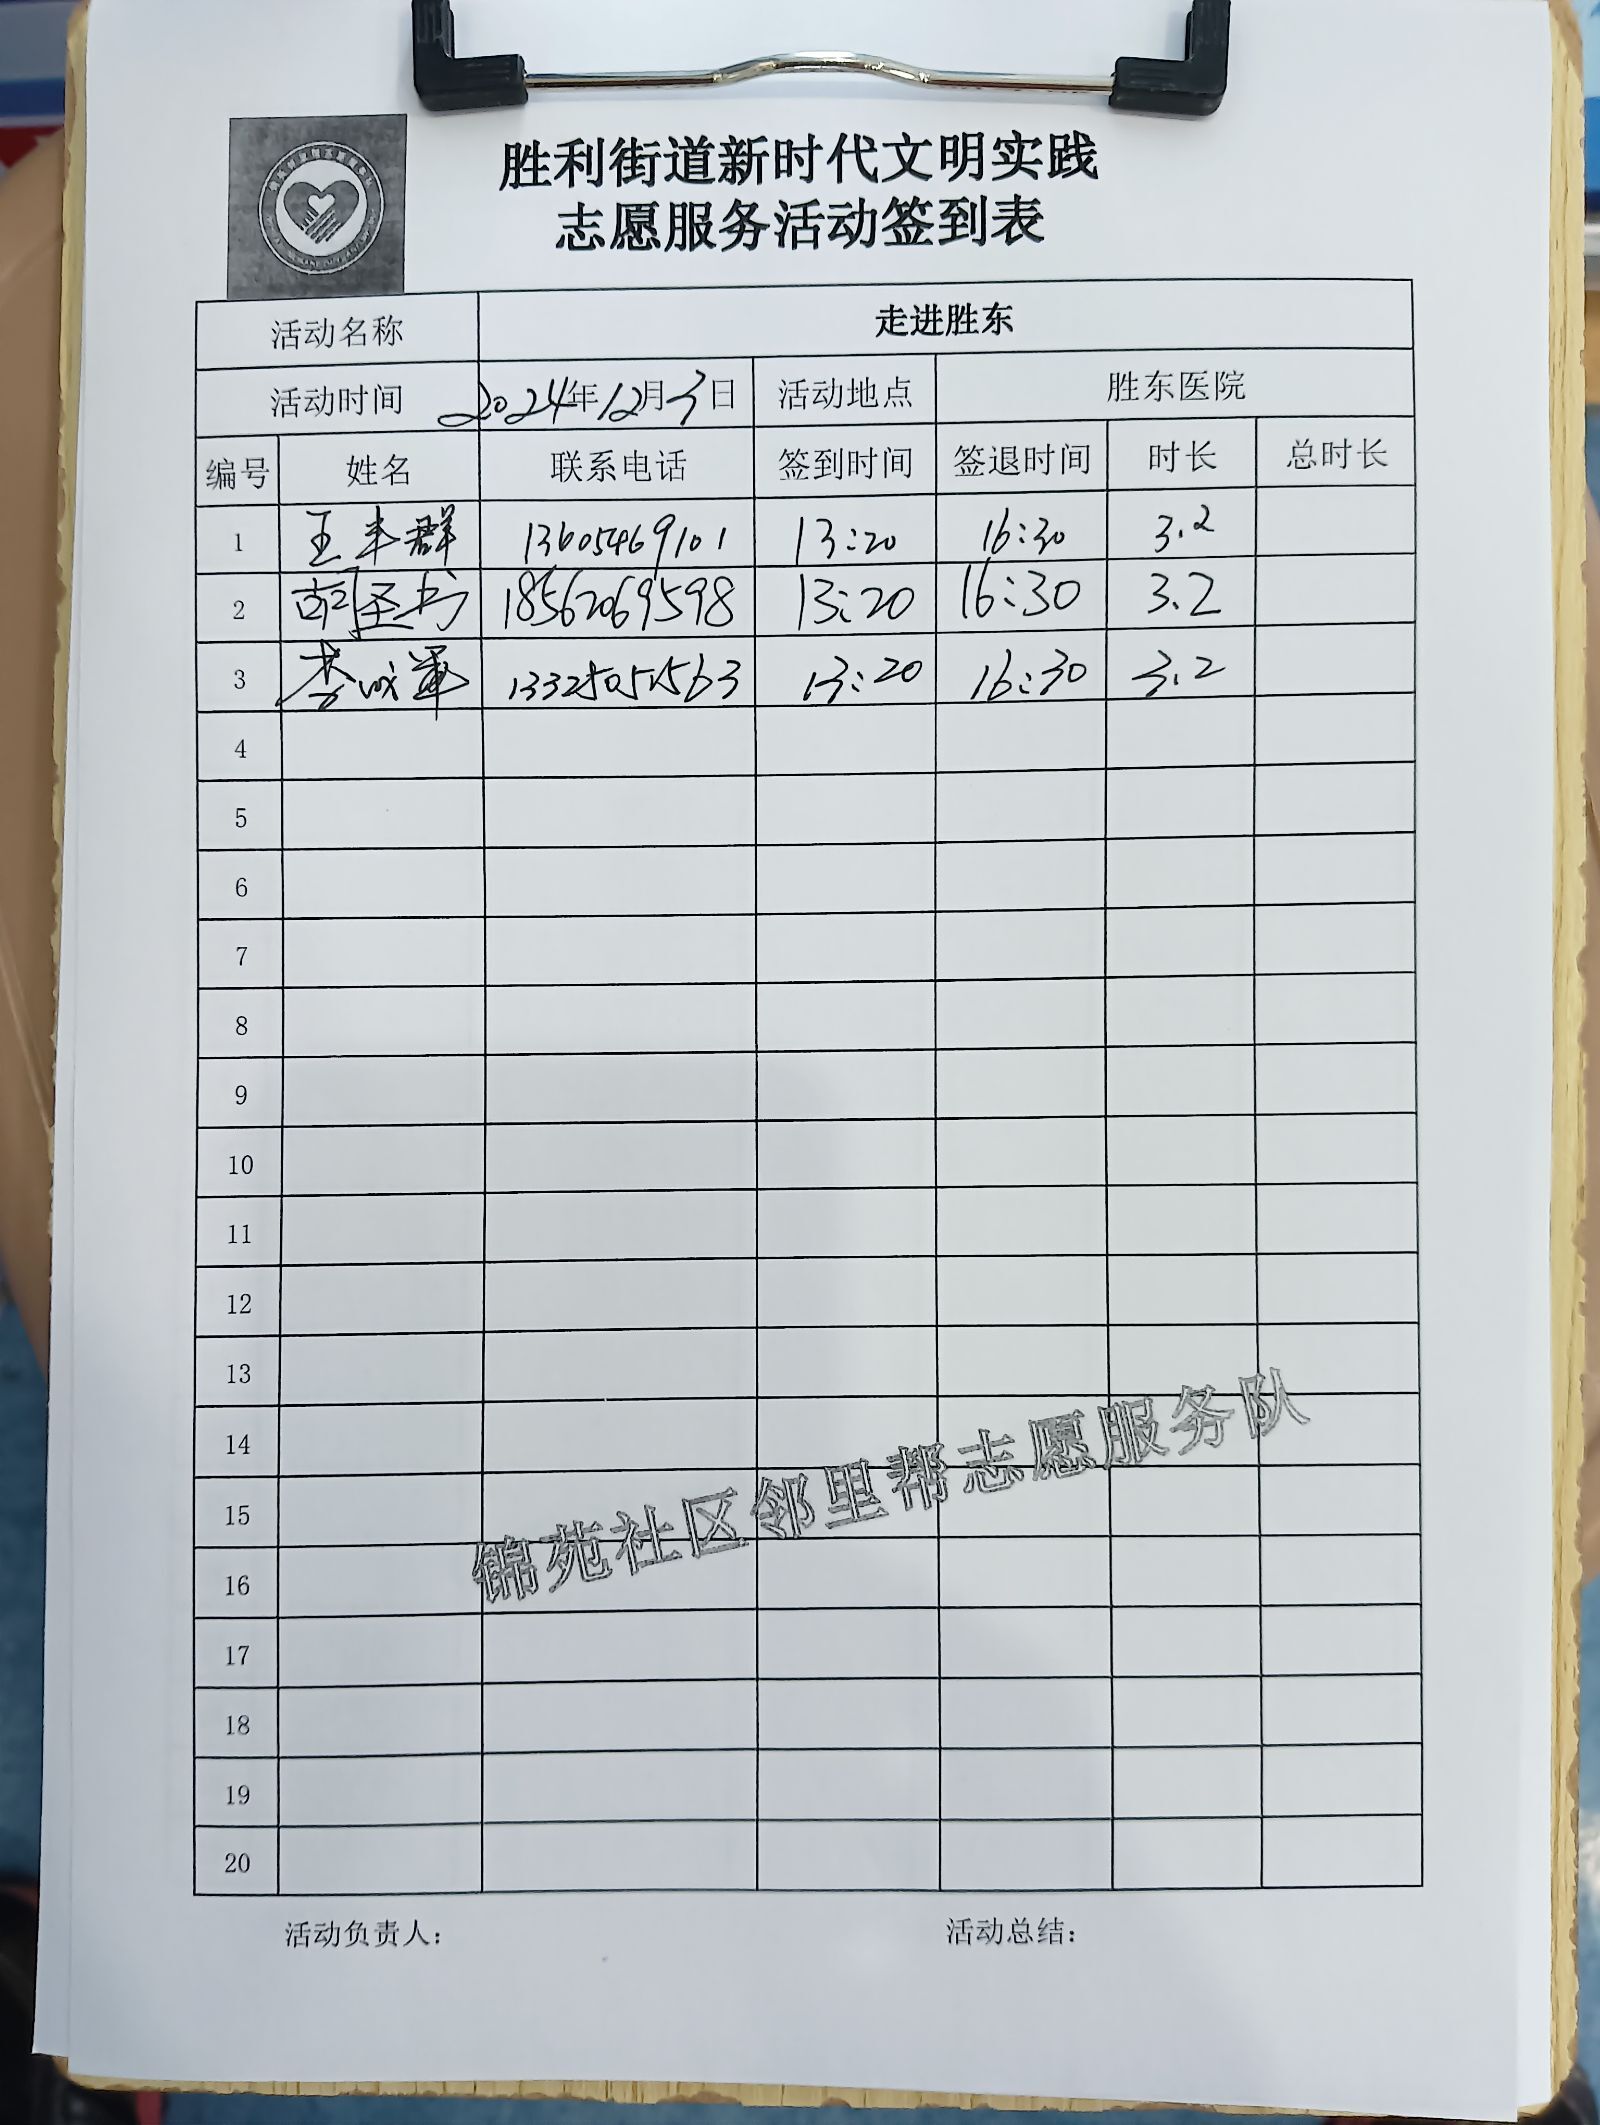 胜利街道新时代文明实践
志愿服务活动签到表
活动名称 走进胜东
活动时间 2024年12月3日 活动地点 胜东医院
编号 姓名 联系电话 签到时间 签退时间 时长 总时长
1 王丰群 13605469101 13:20 16:30 3.2
2 18562069598 13:20 16:30 3.2
3 李成军 13325051563 13:20 16:30 3.2
4
5
6
7
8
9
10
11
12
13
14
15
16
17
18
19
20
锦苑社区邻里帮志愿服务队
活动负责人： 活动总结：